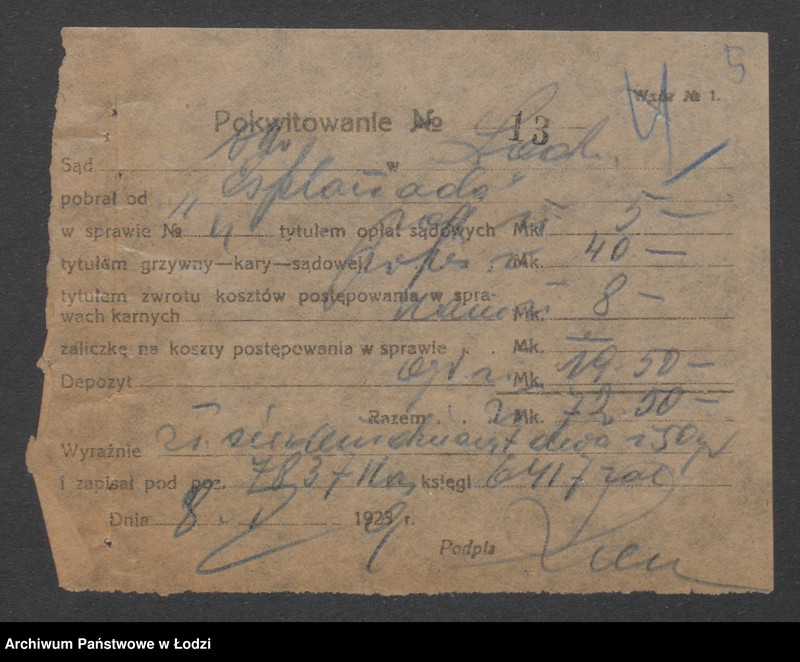 5
Wzór № 1.
Pokwitowanie № 13
Sąd w
pobrał od "Esplanada"
w sprawie № 4 tytułem opłat sądowych Mk. 5 —
tytułem grzywny—kary—sądowej Mk. 40 —
tytułem zwrotu kosztów postępowania w spra-
wach karnych Mk. 8 —
zaliczkę na koszty postępowania w sprawie Mk. —
Depozyt Mk. 19.50 —
Razem Mk. 72.50 —
Wyraźnie zł. siedemdziesiąt dwa i 50 gr
i zapisał pod poz. 7837 księgi
Dnia 8. 1923 r.
Podpis
Archiwum Państwowe w Łodzi